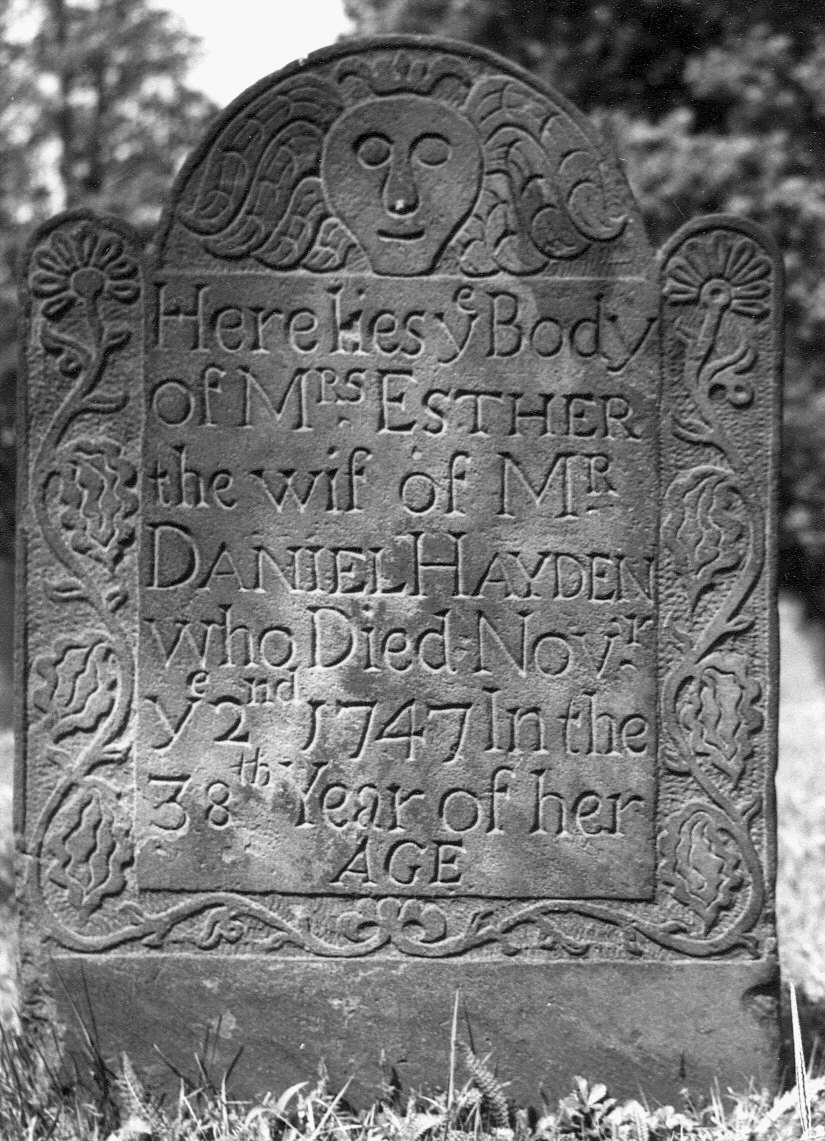 Here lies yᵉ Body
of Mᴿˢ ESTHER
the wif of Mᴿ
DANIEL HAYDEN
who Died Novʳ
yᵉ 2ⁿᵈ 1747 In the
38ᵗʰ Year of her
AGE